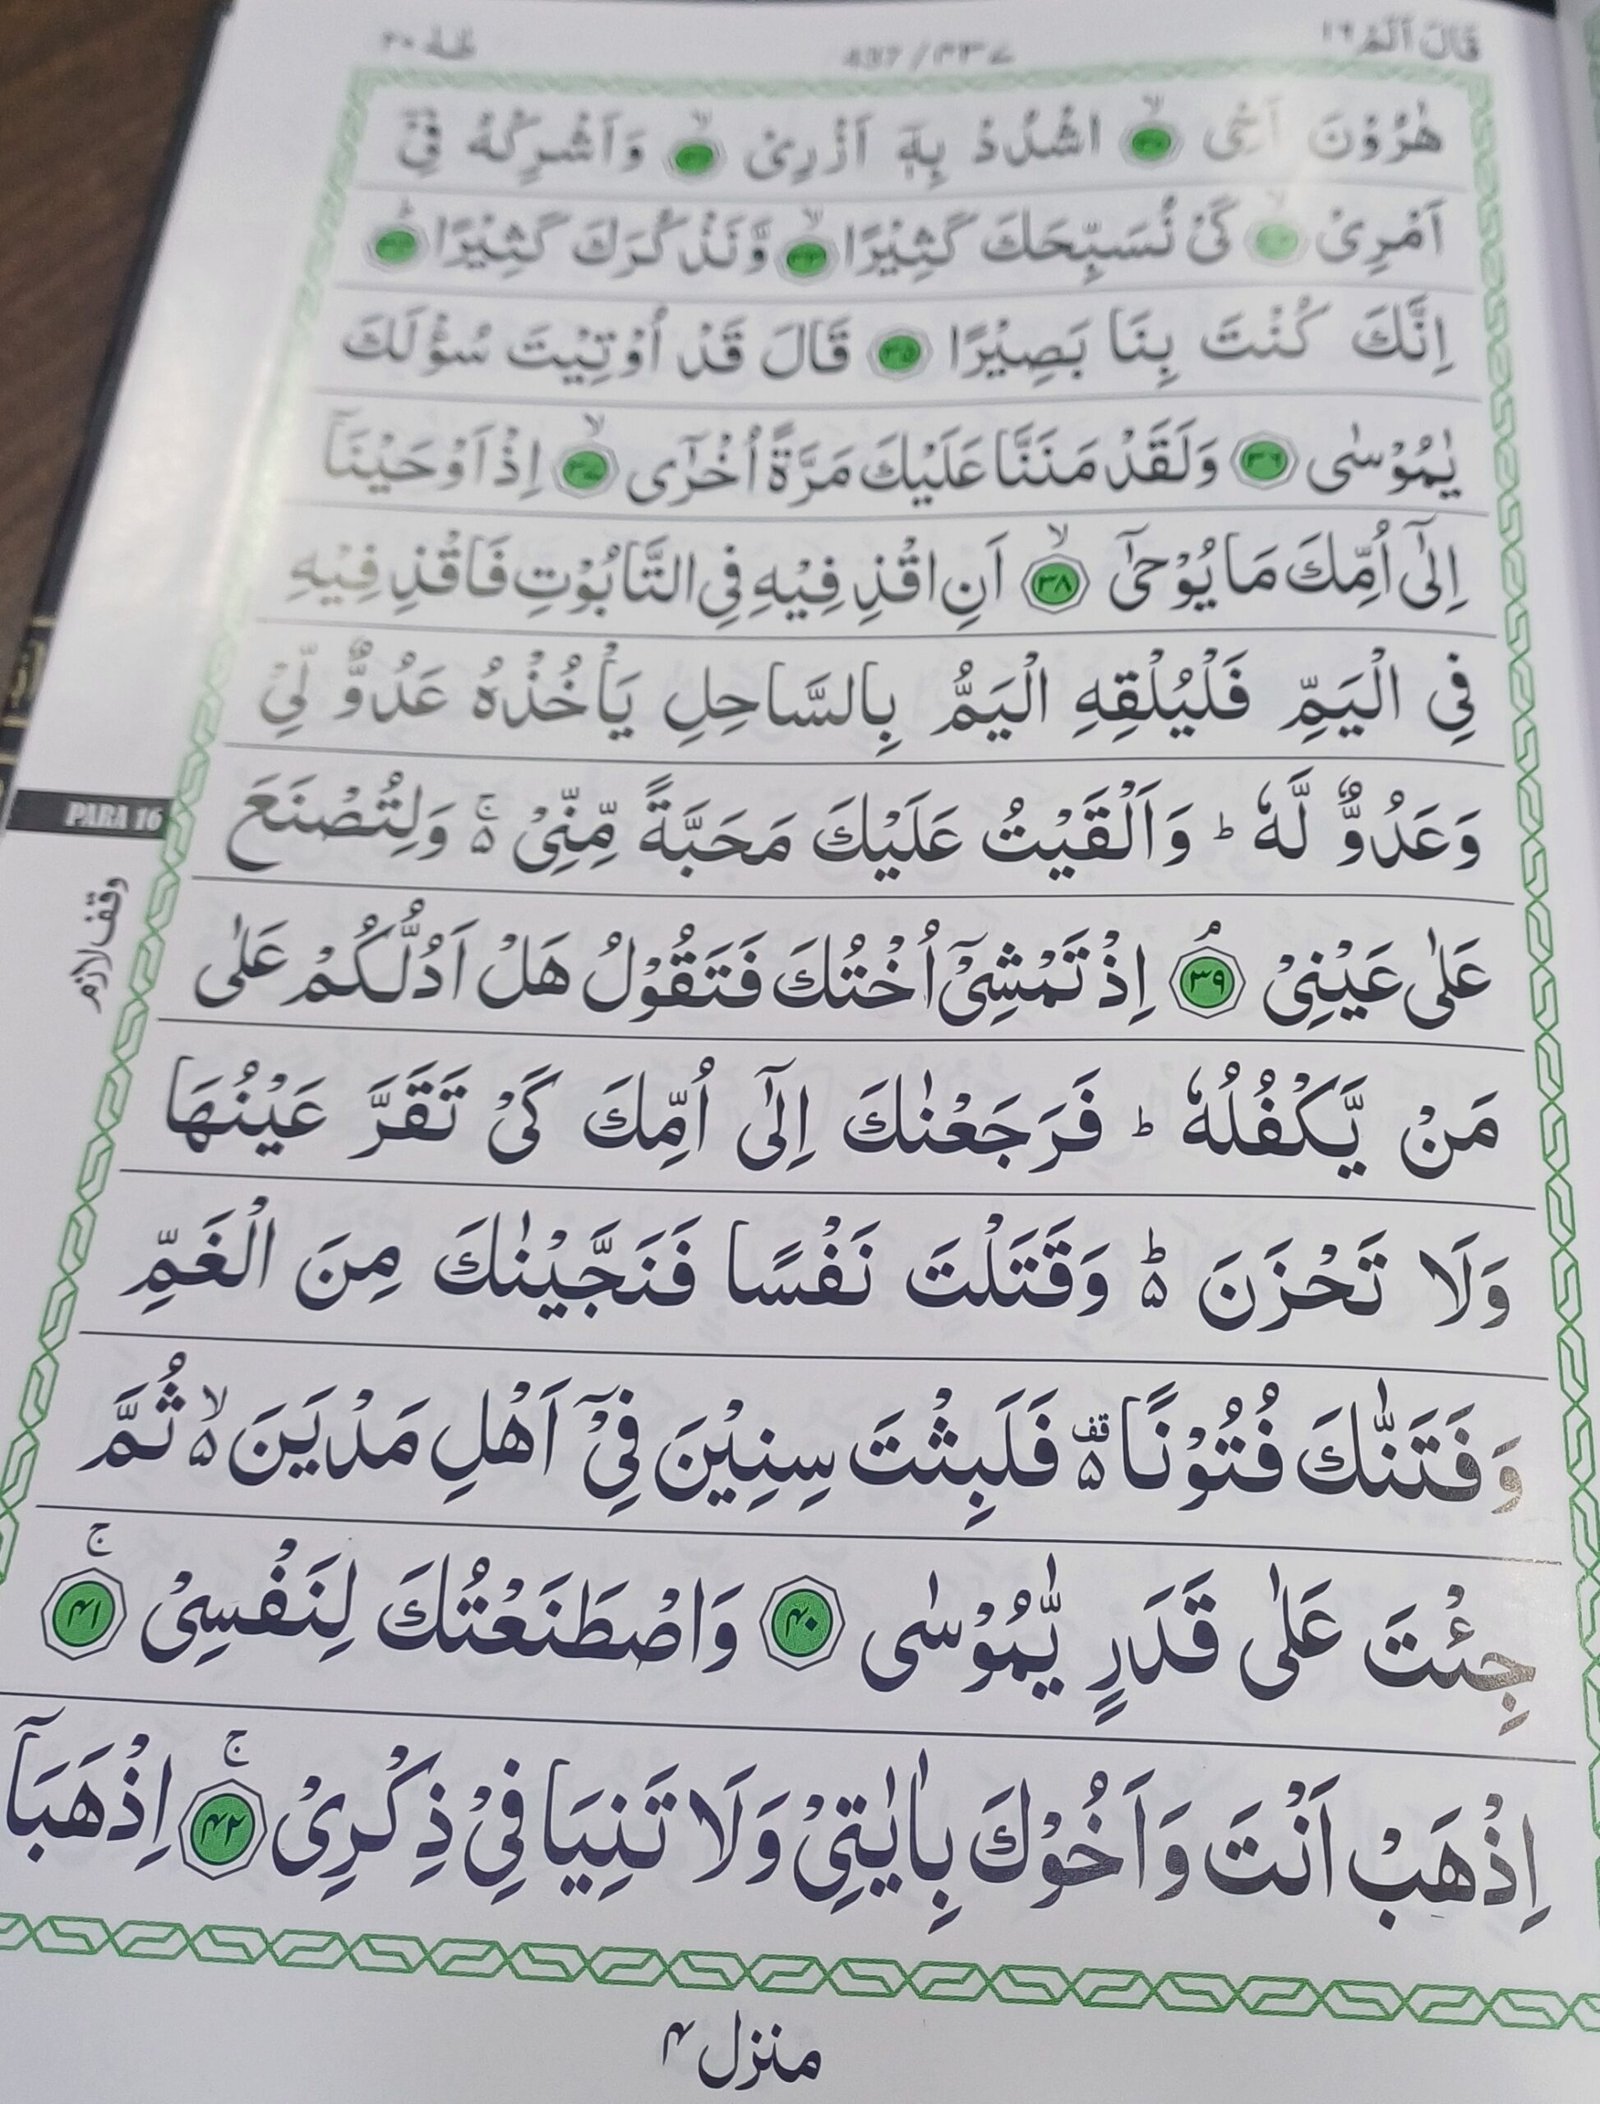 قَالَ اَلَمْ ١٦
437/۴۳۷
طٰهٰ ۲۰
هٰرُوْنَ اَخِی ۙ﴿۳۰﴾ اشْدُدْ بِهٖۤ اَزْرِیْ ۙ﴿۳۱﴾ وَاَشْرِكْهُ فِیْۤ
اَمْرِیْ ۙ﴿۳۲﴾ كَیْ نُسَبِّحَكَ كَثِیْرًا ۙ﴿۳۳﴾ وَّنَذْكُرَكَ كَثِیْرًا ؕ﴿۳۴﴾
اِنَّكَ كُنْتَ بِنَا بَصِیْرًا ﴿۳۵﴾ قَالَ قَدْ اُوْتِیْتَ سُؤْلَكَ
یٰمُوْسٰی ﴿۳۶﴾ وَلَقَدْ مَنَنَّا عَلَیْكَ مَرَّةً اُخْرٰۤی ۙ﴿۳۷﴾ اِذْ اَوْحَیْنَاۤ
اِلٰۤی اُمِّكَ مَا یُوْحٰۤی ۙ﴿۳۸﴾ اَنِ اقْذِفِیْهِ فِی التَّابُوْتِ فَاقْذِفِیْهِ
فِی الْیَمِّ فَلْیُلْقِهِ الْیَمُّ بِالسَّاحِلِ یَاْخُذْهُ عَدُوٌّ لِّیْ
وَعَدُوٌّ لَّهٗ ؕ وَاَلْقَیْتُ عَلَیْكَ مَحَبَّةً مِّنِّیْ ۚ۬ وَلِتُصْنَعَ
PARA 16
وقف لازم
عَلٰی عَیْنِیْ ۘ﴿۳۹﴾ اِذْ تَمْشِیْۤ اُخْتُكَ فَتَقُوْلُ هَلْ اَدُلُّكُمْ عَلٰی
مَنْ یَّكْفُلُهٗ ؕ فَرَجَعْنٰكَ اِلٰۤی اُمِّكَ كَیْ تَقَرَّ عَیْنُهَا
وَلَا تَحْزَنَ ؕ۬ وَقَتَلْتَ نَفْسًا فَنَجَّیْنٰكَ مِنَ الْغَمِّ
وَفَتَنّٰكَ فُتُوْنًا ۫۬ فَلَبِثْتَ سِنِیْنَ فِیْۤ اَهْلِ مَدْیَنَ ۙ۬ ثُمَّ
جِئْتَ عَلٰی قَدَرٍ یّٰمُوْسٰی ﴿۴۰﴾ وَاصْطَنَعْتُكَ لِنَفْسِیْ ۚ﴿۴۱﴾
اِذْهَبْ اَنْتَ وَاَخُوْكَ بِاٰیٰتِیْ وَلَا تَنِیَا فِیْ ذِكْرِیْ ۚ﴿۴۲﴾ اِذْهَبَاۤ
منزل ۴